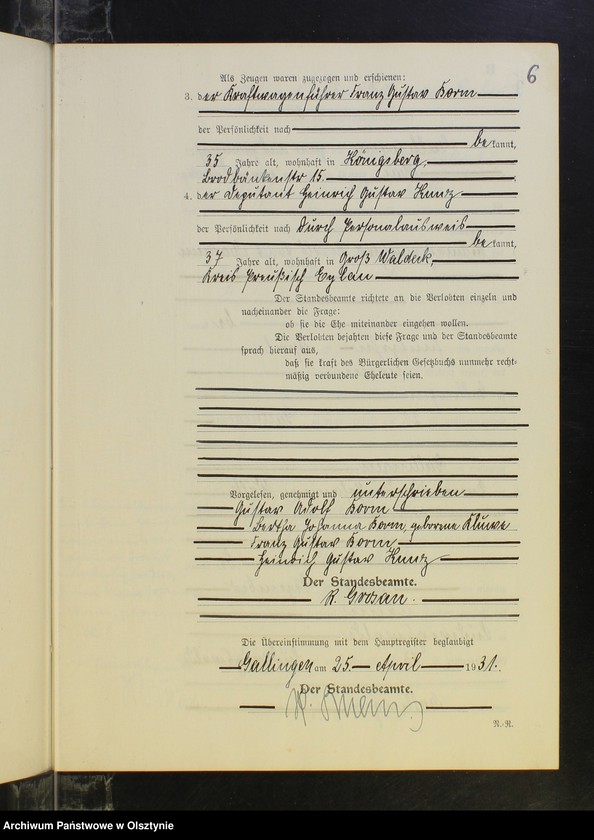 6
Als Zeugen waren zugezogen und erschienen:
3. der Kraftwagenführer Franz Gustav Korm
der Persönlichkeit nach
bekannt,
35 Jahre alt, wohnhaft in Königsberg,
Brodbänkenstr 15.
4. der Deputant Heinrich Gustav Kunz
der Persönlichkeit nach durch Personalausweis
bekannt,
37 Jahre alt, wohnhaft in Groß Waldeck,
Kreis Preußisch Eylau
Der Standesbeamte richtete an die Verlobten einzeln und
nacheinander die Frage:
ob sie die Ehe miteinander eingehen wollen.
Die Verlobten bejahten diese Frage und der Standesbeamte
sprach hierauf aus,
daß sie kraft des Bürgerlichen Gesetzbuchs nunmehr recht-
mäßig verbundene Eheleute seien.
Vorgelesen, genehmigt und unterschrieben
Gustav Adolf Korm
Bertha Johanna Korm, geborene Kluwe
Franz Gustav Korm
Heinrich Gustav Kunz
Der Standesbeamte.
R. Grosan.
Die Übereinstimmung mit dem Hauptregister beglaubigt
Gallingen am 25. April 1931.
Der Standesbeamte.
R.-R.
Archiwum Państwowe w Olsztynie